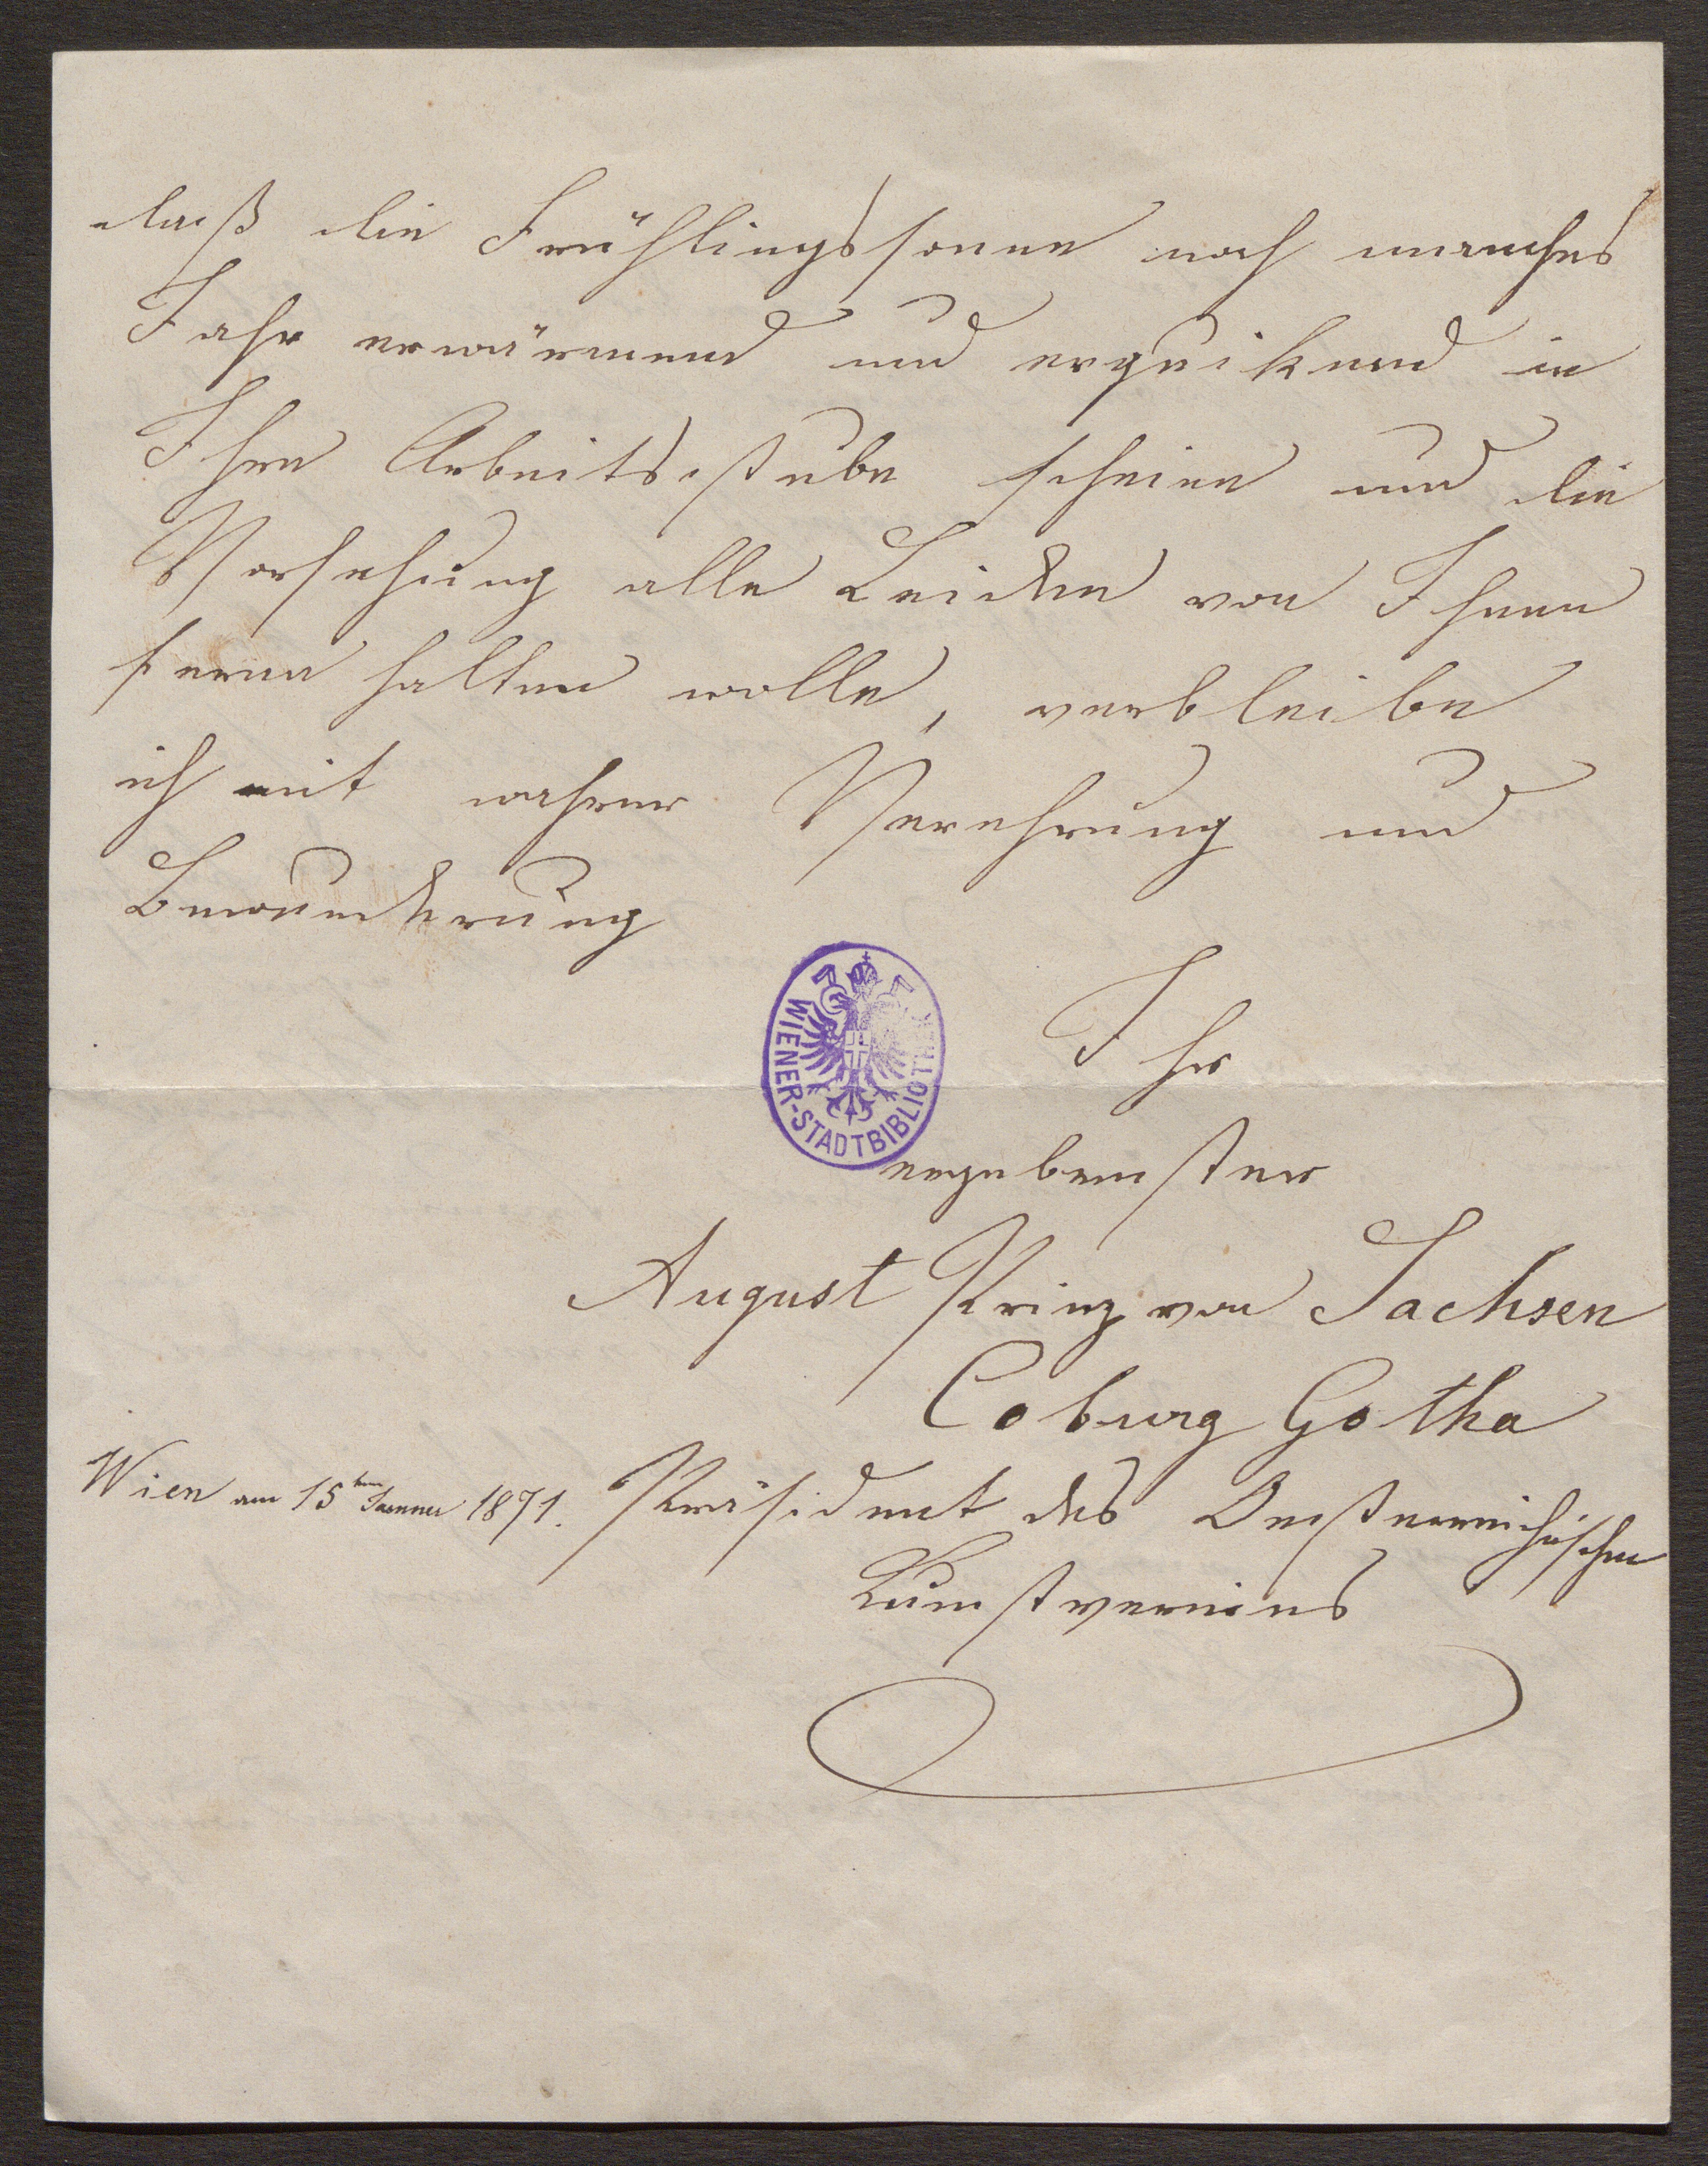 daß die Frühlingssonne noch manches
Jahr erwärmend und erquikend in
Ihre Arbeitsstube scheine und die
Vorsehung alle Leiden von Ihnen
ferne halten wolle, verbleibe
ich mit wahrer Verehrung und
Bewunderung
Ihr
WIENER-STADTBIBLIOTHEK
ergebenster
August Prinz von Sachsen
Coburg Gotha
Wien am 15ten Jaenner 1871. Präsident des Oesterreichischen
Kunstvereins